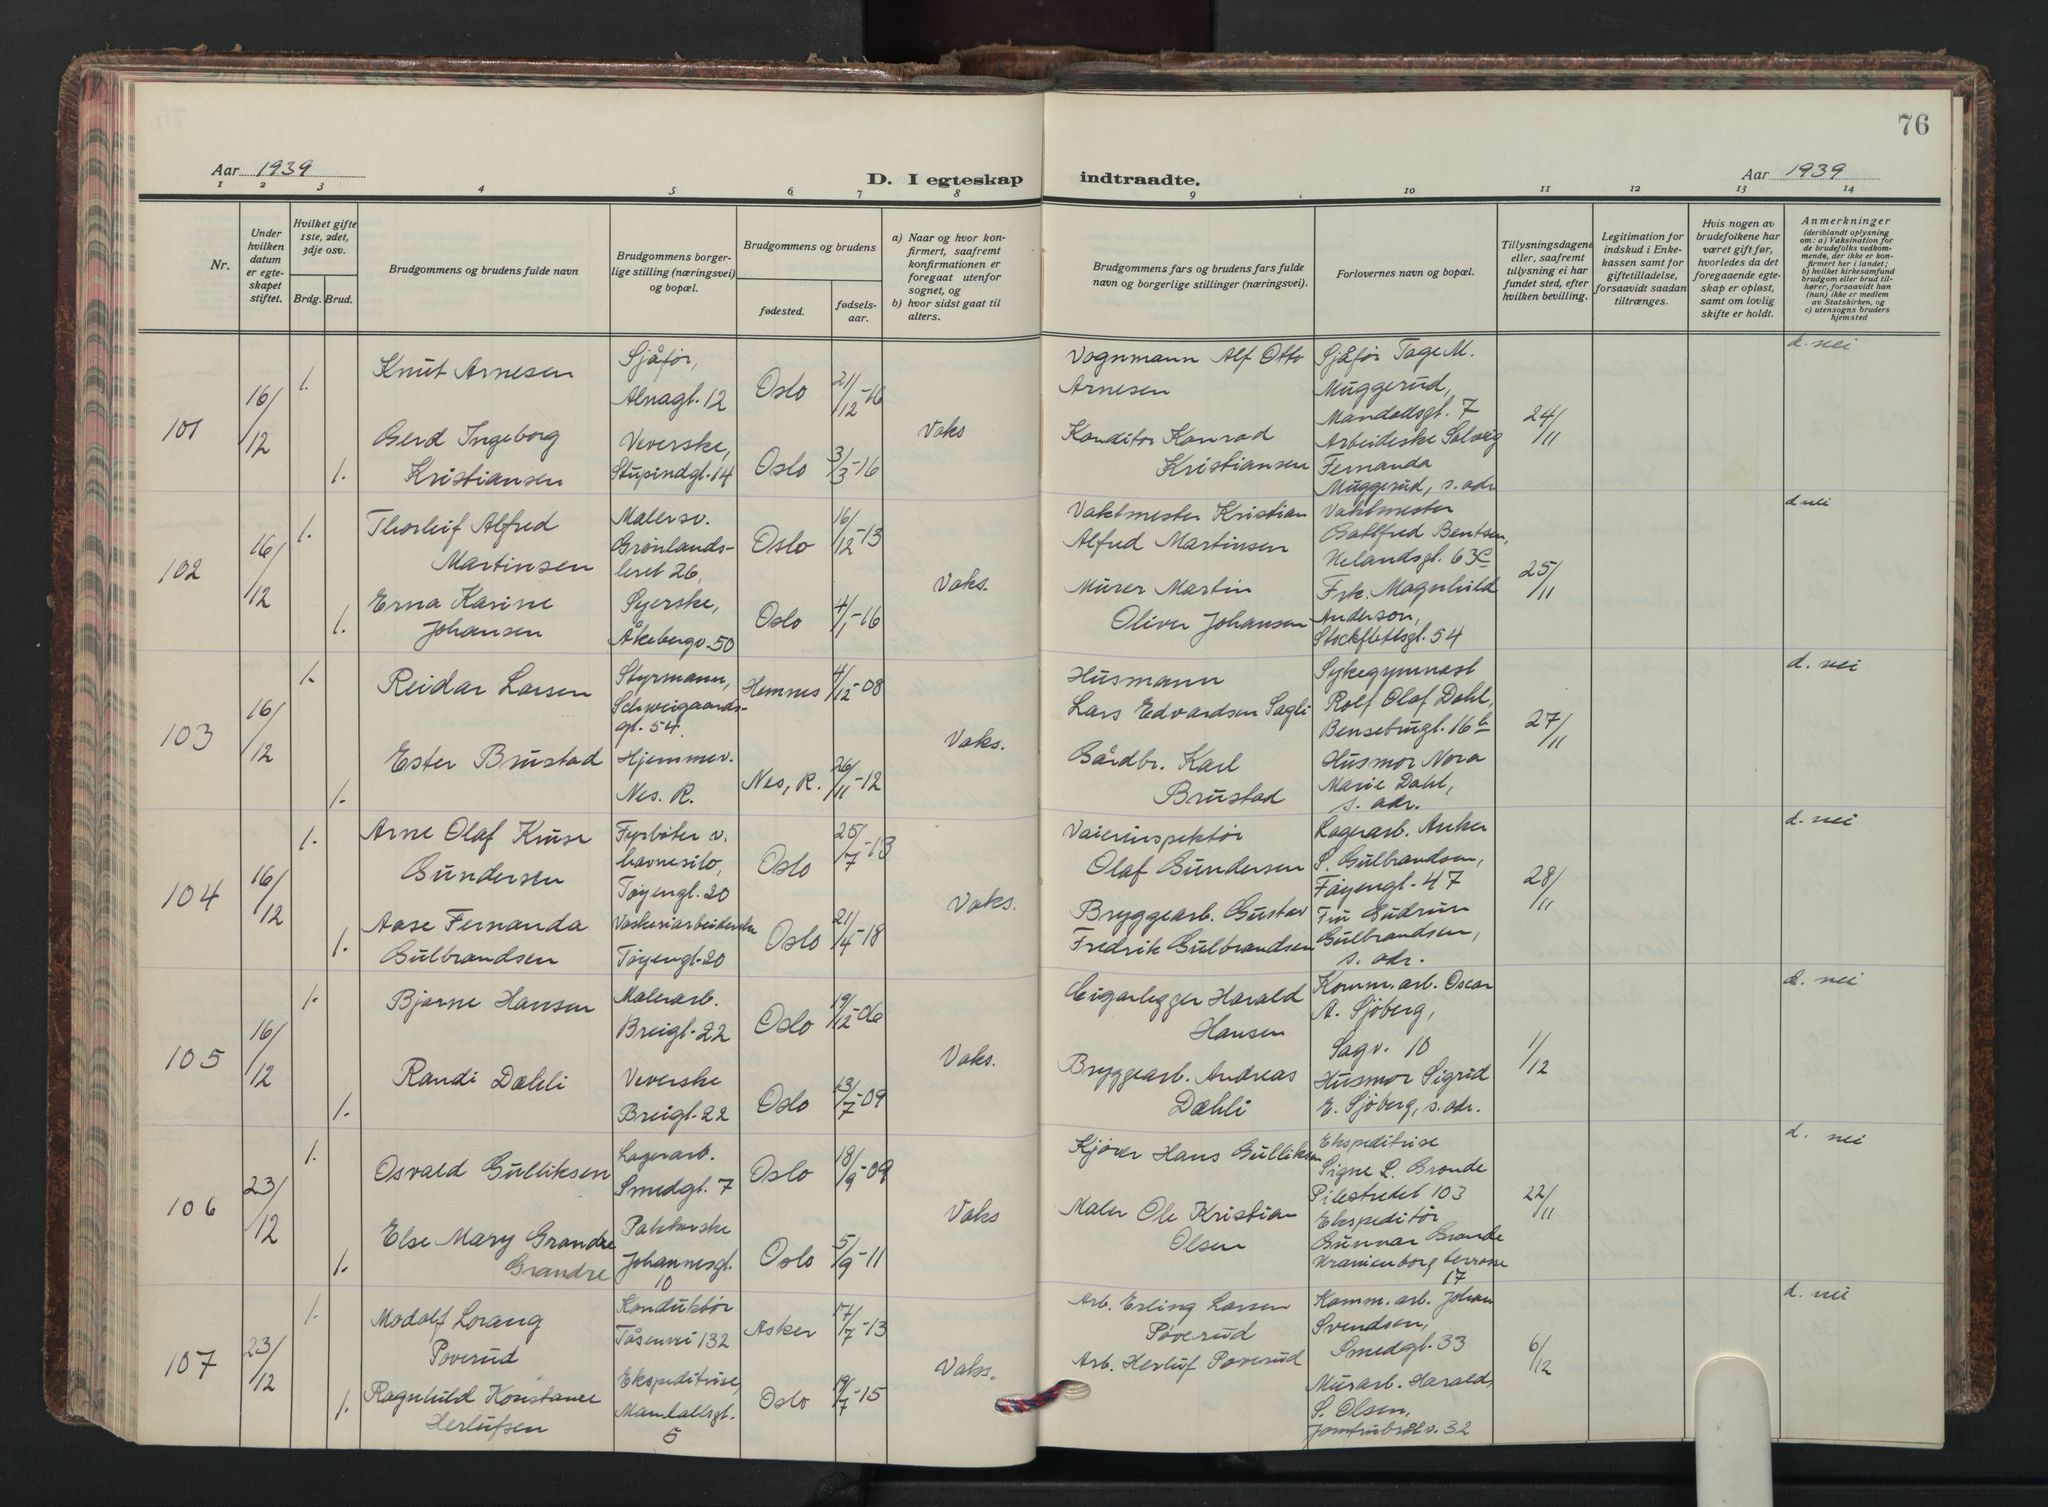 76
Aar 1939
D. I egteskap
indtraadte.
Aar 1939
1 2 3 4 5 6 7 8 9 10 11 12 13 14
Nr.
Under
hvilken
datum
er egte-
skapet
stiftet.
Hvilket gifte
1ste, 2det,
3dje osv.
Brdg. Brud.
Brudgommens og brudens fulde navn
Brudgommens borger-
lige stilling (næringsvei)
og bopæl.
Brudgommens og brudens
fødested.
fødsels-
aar.
a) Naar og hvor kon-
firmert, saafremt
konfirmationen er
foregaat utenfor
sognet, og
b) hvor sidst gaat til
alters.
Brudgommens fars og brudens fars fulde
navn og borgerlige stillinger (næringsvei).
Forlovernes navn og bopæl.
Tillysningsdagene
eller, saafremt
tillysning ei har
fundet sted, efter
hvilken bevilling.
Legitimation for
indskud i Enke-
kassen samt for
giftetilladelse,
forsaavidt saadan
tiltrænges.
Hvis nogen av
brudefolkene har
været gift før,
hvorledes da det
foregaaende egte-
skap er opløst,
samt om lovlig
skifte er holdt.
Anmerkninger
(deriblandt oplysning
om: a) Vaksination for
de brudefolks vedkom-
mende, der ikke er kon-
firmert her i landet;
b) hvilket kirkesamfund
brudgom eller brud til-
hører, forsaavidt han
(hun) ikke er medlem
av Statskirken, og
c) utensogns bruders
hjemsted
101 16/12
1. Knut Arnesen
Sjåfør,
Alnagt. 12
Oslo 21/12-16
1. Gerd Ingeborg
Kristiansen
Veverske,
Stupindgt. 14
Oslo 3/3-16
Vaks
Vognmann Alf Otto
Arnesen
Konditor Konrad
Kristiansen
Sjåfør Tage M.
Muggerud,
Mandalsgt. 7
Arbeideske Solveig
Fernanda
Muggerud, s. adr
24/11
d. nei
102 16/12
1. Thorleif Alfred
Martinsen
Malersv.
Grønlands-
leret 26,
Oslo 16/12-13
1. Erna Karine
Johansen
Syerske,
Åkebergv. 50
Oslo 4/1-16
Vaks.
Vaktmester Kristian
Alfred Martinsen
Murer Martin
Oliver Johansen
Vaktmester
Gottfred Bentsen,
Helandsgt. 63c
Frk. Magnhild
Anderson,
Stockflethsgt. 54
25/11
d. nei
103 16/12
1. Reidar Larsen
Styrmann,
Schweigaards-
gt. 54.
Hemnes 4/12-08
1. Ester Brustad
Hjemmev.
Nes. R.
Nes, R. 26/11-12
Vaks.
Husmann
Lars Edvardsen Sagli
Gårdbr. Karl
Brustad
Sykegymnast
Rolf Olaf Dahl,
Bensebrugt. 16b
Husmor Nora
Marie Dahl,
s. adr.
27/11
d. nei
104 16/12
1. Arne Olaf Kruse
Gundersen
Fyrbøter v.
havnesilo,
Tøyengt. 20
Oslo 25/7-13
1. Aase Fernanda
Gulbrandsen
Vaskeriarbeiderske
Tøyengt. 20
Oslo 21/4-18
Vaks.
Vaierinspektør
Olaf Gundersen
Bryggearb. Gustav
Fredrik Gulbrandsen
Lagerarb. Anker
S. Gulbrandsen,
Tøyengt. 47
Fru Gudrun
Gulbrandsen,
s. adr.
28/11
d. nei
105 16/12
1. Bjarne Hansen
Malerarb.
Breigt. 22
Oslo 19/12-06
1. Randi Dæhli
Veverske
Breigt. 22
Oslo 13/7-09
Vaks.
Cigarlegger Harald
Hansen
Bryggearb. Andreas
Dæhli
Komm. arb. Oscar
A. Sjöberg,
Sagv. 10
Husmor Sigrid
E. Sjöberg, s. adr.
1/12
d. nei
106 23/12
1. Osvald Gulliksen
Lagerarb.
Smedgt. 7
Oslo 18/9-09
1. Else Mary Grandre
Grandre
Pakkerske
Johannesgt.
10
Oslo 5/9-11
Vaks
Kjører Hans Gulliksen
Maler Ole Kristian
Olsen
Ekspeditrise
Signe L. Grande
Pilestredet 103
Ekspeditør
Gunnar Grande
Uranienborg terrasse
17
22/11
d. nei
107 23/12
1. Modolf Lorang
Poverud
Konduktør
Tåsenvei 132
Asker 17/7-13
1. Ragnhild Konstanse
Herlufsen
Ekspeditrise,
Mandallsgt.
5
Oslo 19/7-15
Vaks.
Arb. Erling Larsen
Poverud
Arb. Herluf Poverud
Komm. arb. Johan
Svendsen,
Smedgt. 33
Murarb. Harald,
S. Olsen,
Jomfrubråtv. 32
6/12
d. nei